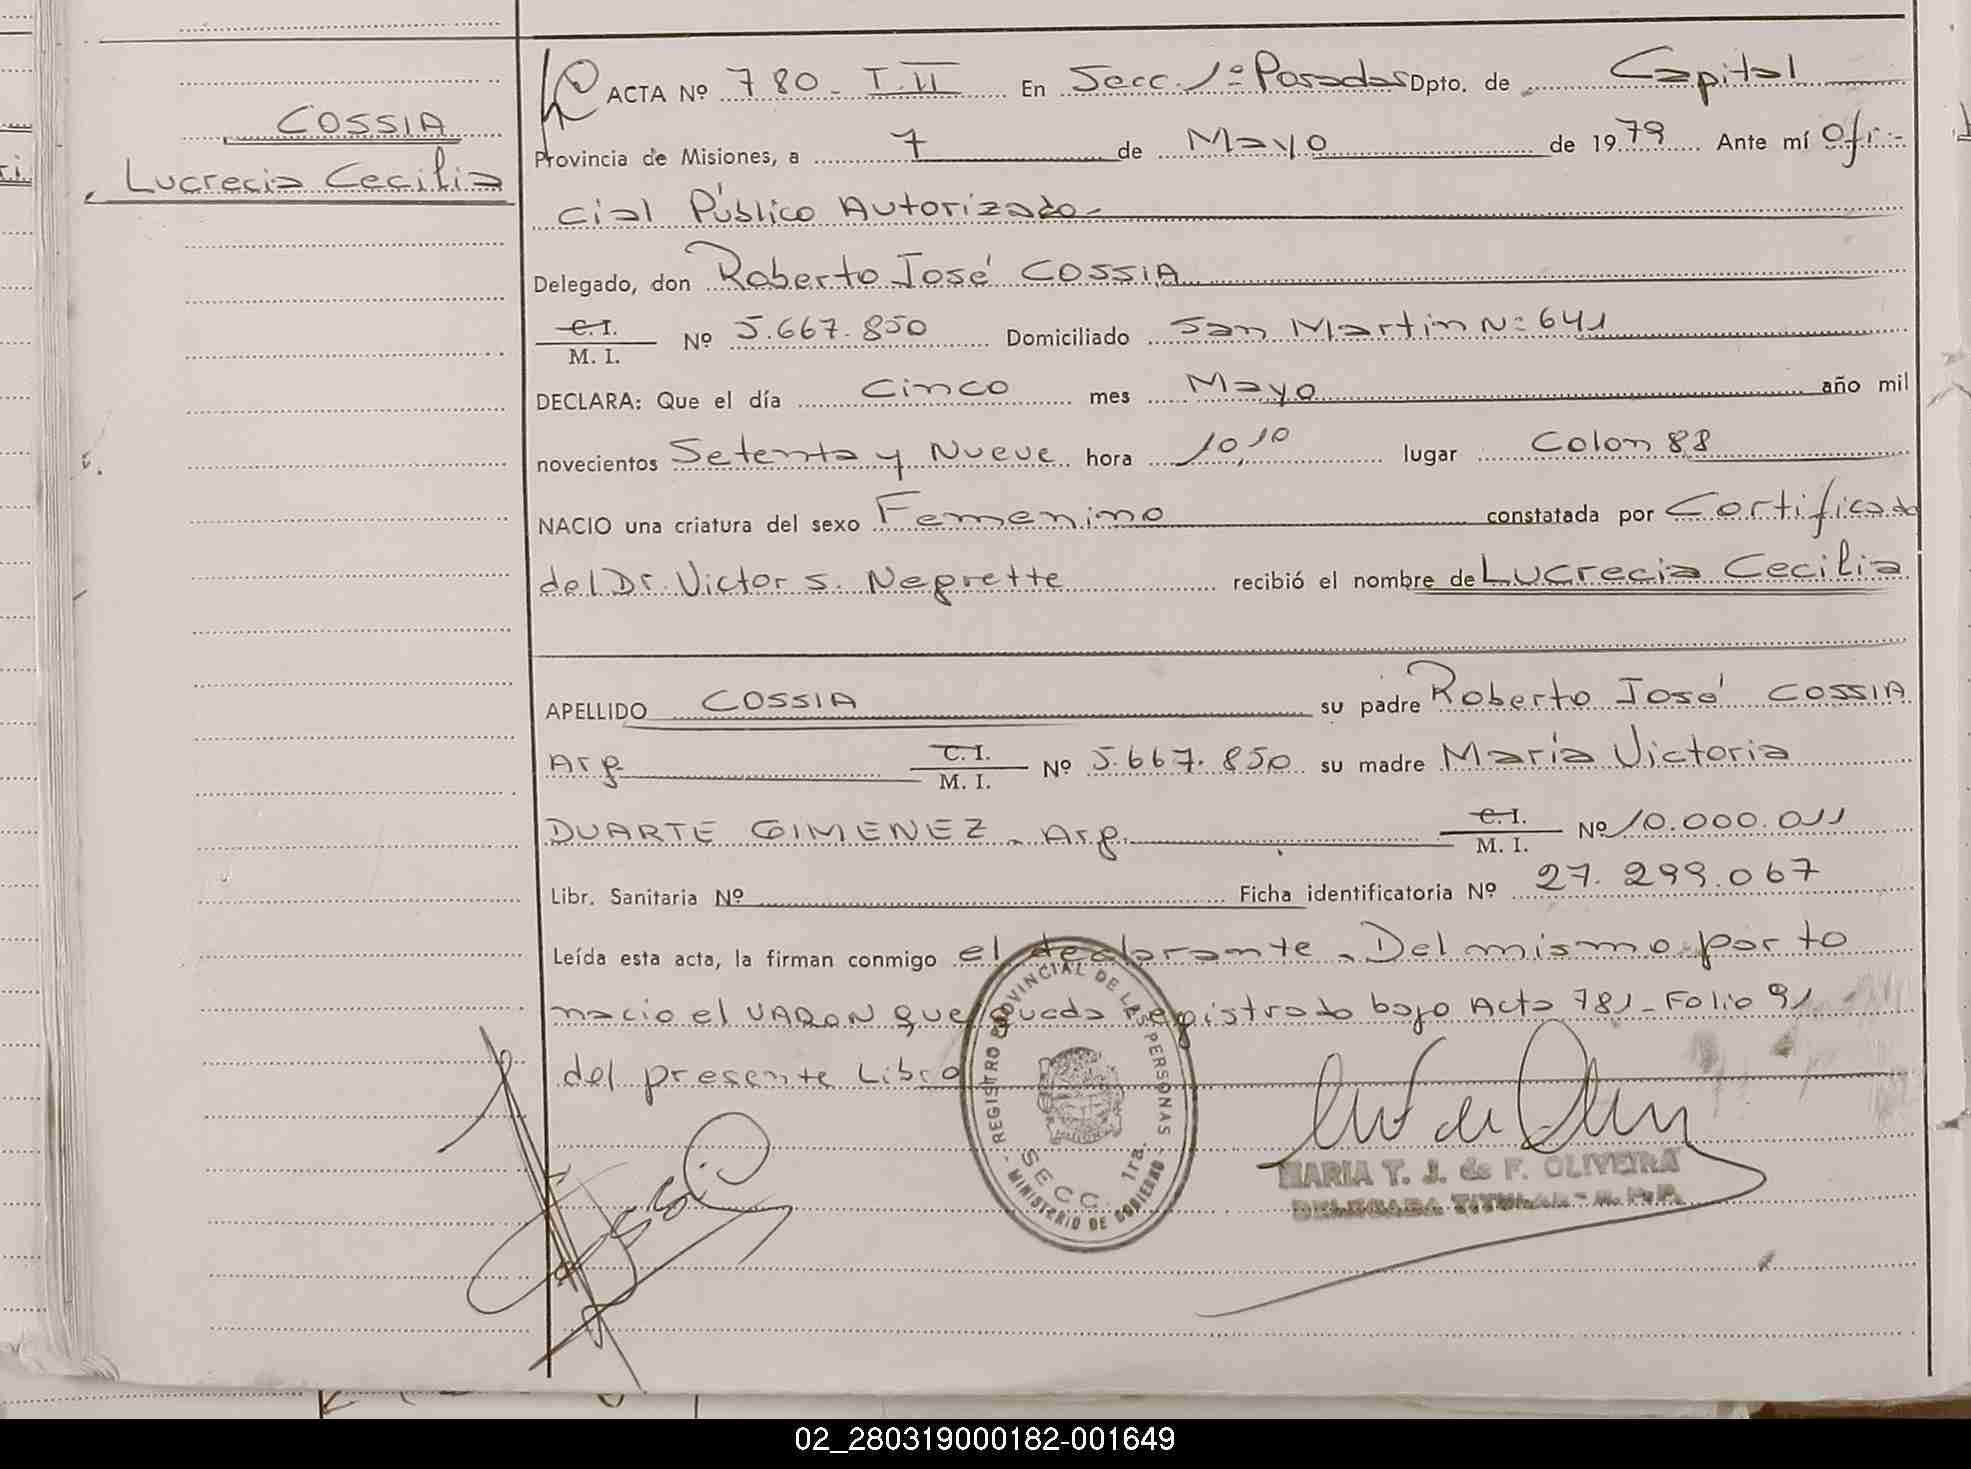 COSSIA
Lucrecia Cecilia
ACTA Nº 780 - T. II En Secc. 1º Posadas Dpto. de Capital
Provincia de Misiones, a 7 de Mayo de 1979 Ante mí Ofi-
cial Público Autorizado-
Delegado, don Roberto José COSSIA
C.I.
M. I. Nº 5.667.850 Domiciliado San Martin Nº 641
DECLARA: Que el día Cinco mes Mayo año mil
novecientos Setenta y Nueve hora 10,10 lugar Colon 88
NACIO una criatura del sexo Femenino constatada por Certificado
del Dr. Victor S. Negrette recibió el nombre de Lucrecia Cecilia
APELLIDO COSSIA su padre Roberto José COSSIA
Arg. C.I.
M. I. Nº 5.667.850 su madre María Victoria
DUARTE GIMENEZ - Arg. C.I.
M. I. Nº 10.000.011
Libr. Sanitaria Nº Ficha identificatoria Nº 27.299.067
Leída esta acta, la firman conmigo el declarante - Del mismo parto
nacio el VARON que queda registrado bajo Acta 781 - Folio 91
del presente Libro
REGISTRO PROVINCIAL DE LAS PERSONAS
SECC. 1ra.
- MINISTERIO DE GOBIERNO -
MARIA T. J. de F. OLIVEIRA
DELEGADA TITULAR - R. P. P.
02_280319000182-001649